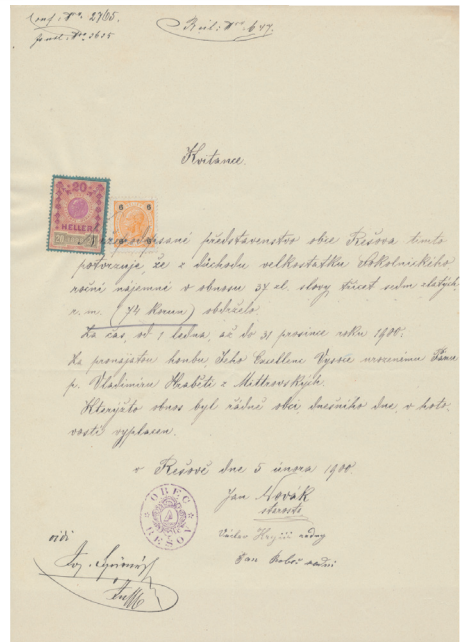 Conf. Nro. 2765.
Journ. Nro. 3625
Rubl. Nro. 677.
Kvitance.
20
HELLER
6
6
Níže podepsané představenstvo obce Řešova tímto
potvrzuje, že z důchodu velkostatku Sokolnického
roční nájemné v obnosu 37 zl. slovy třicet sedm zlatých
r. m. (74 korun) obdrželo.
Za čas, od 1 ledna, až do 31 prosince roku 1900.
Za pronajatou honbu Jeho Excellenci Vysoce urozenému Pánu
p. Vladimíru Hraběti z Mittrovských.
Kterýžto obnos byl řádně obci, dnešního dne, v hoto-
vosti vyplacen.
v Řešově dne 5 února 1900.
OBEC
ŘEŠOV
Jan Novák
starosta
Václav radny
Jan radní
vidi